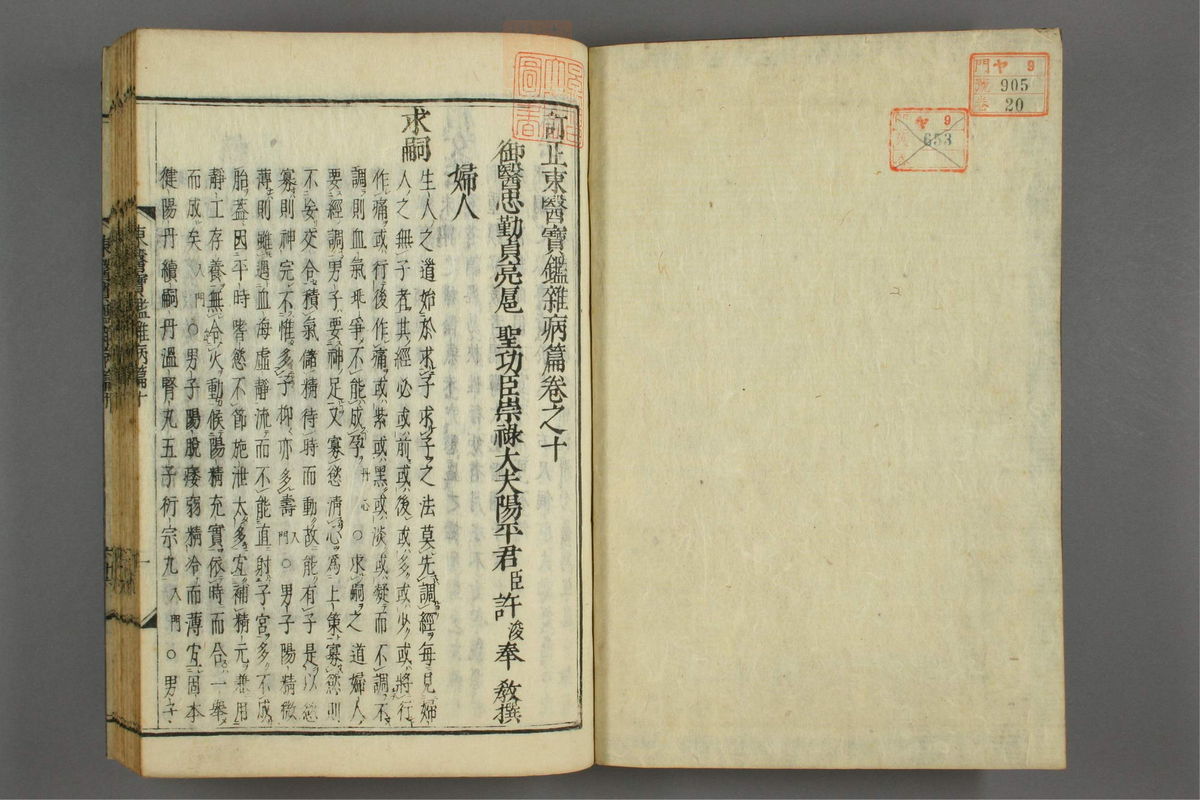 門 ヤ 9
號 905
卷 20
ヤ 9
653
訂正東醫寶鑑雜病篇卷之十
御醫忠勤貞亮扈 聖功臣崇祿大夫陽平君臣許浚奉 敎撰
婦人
求嗣
生人之道始於求子求子之法莫先調經每見婦
人之無子者其經必或前或後或多或少或將行
作痛或行後作痛或紫或黑或淡或凝而不調不
調則血氣乖爭不能成孕丹心○求嗣之道婦人
要經調男子要神足又寡慾淸心爲上策寡慾則
不妄交合積氣儲精待時而動故能有子是以慾
寡則神完不惟多子抑亦多壽入門○男子陽精微
薄則雖遇血海虛靜流而不能直射子宮多不成
胎蓋因平時嗜慾不節施泄太多宜補精元兼用
靜工存養無令火動候陽精充實依時而合一舉
而成矣入門○男子陽脫痿弱精冷而薄宜固本
健陽丹續嗣丹溫腎丸五子衍宗丸入門○男子
東醫寶鑑雜病篇十
一